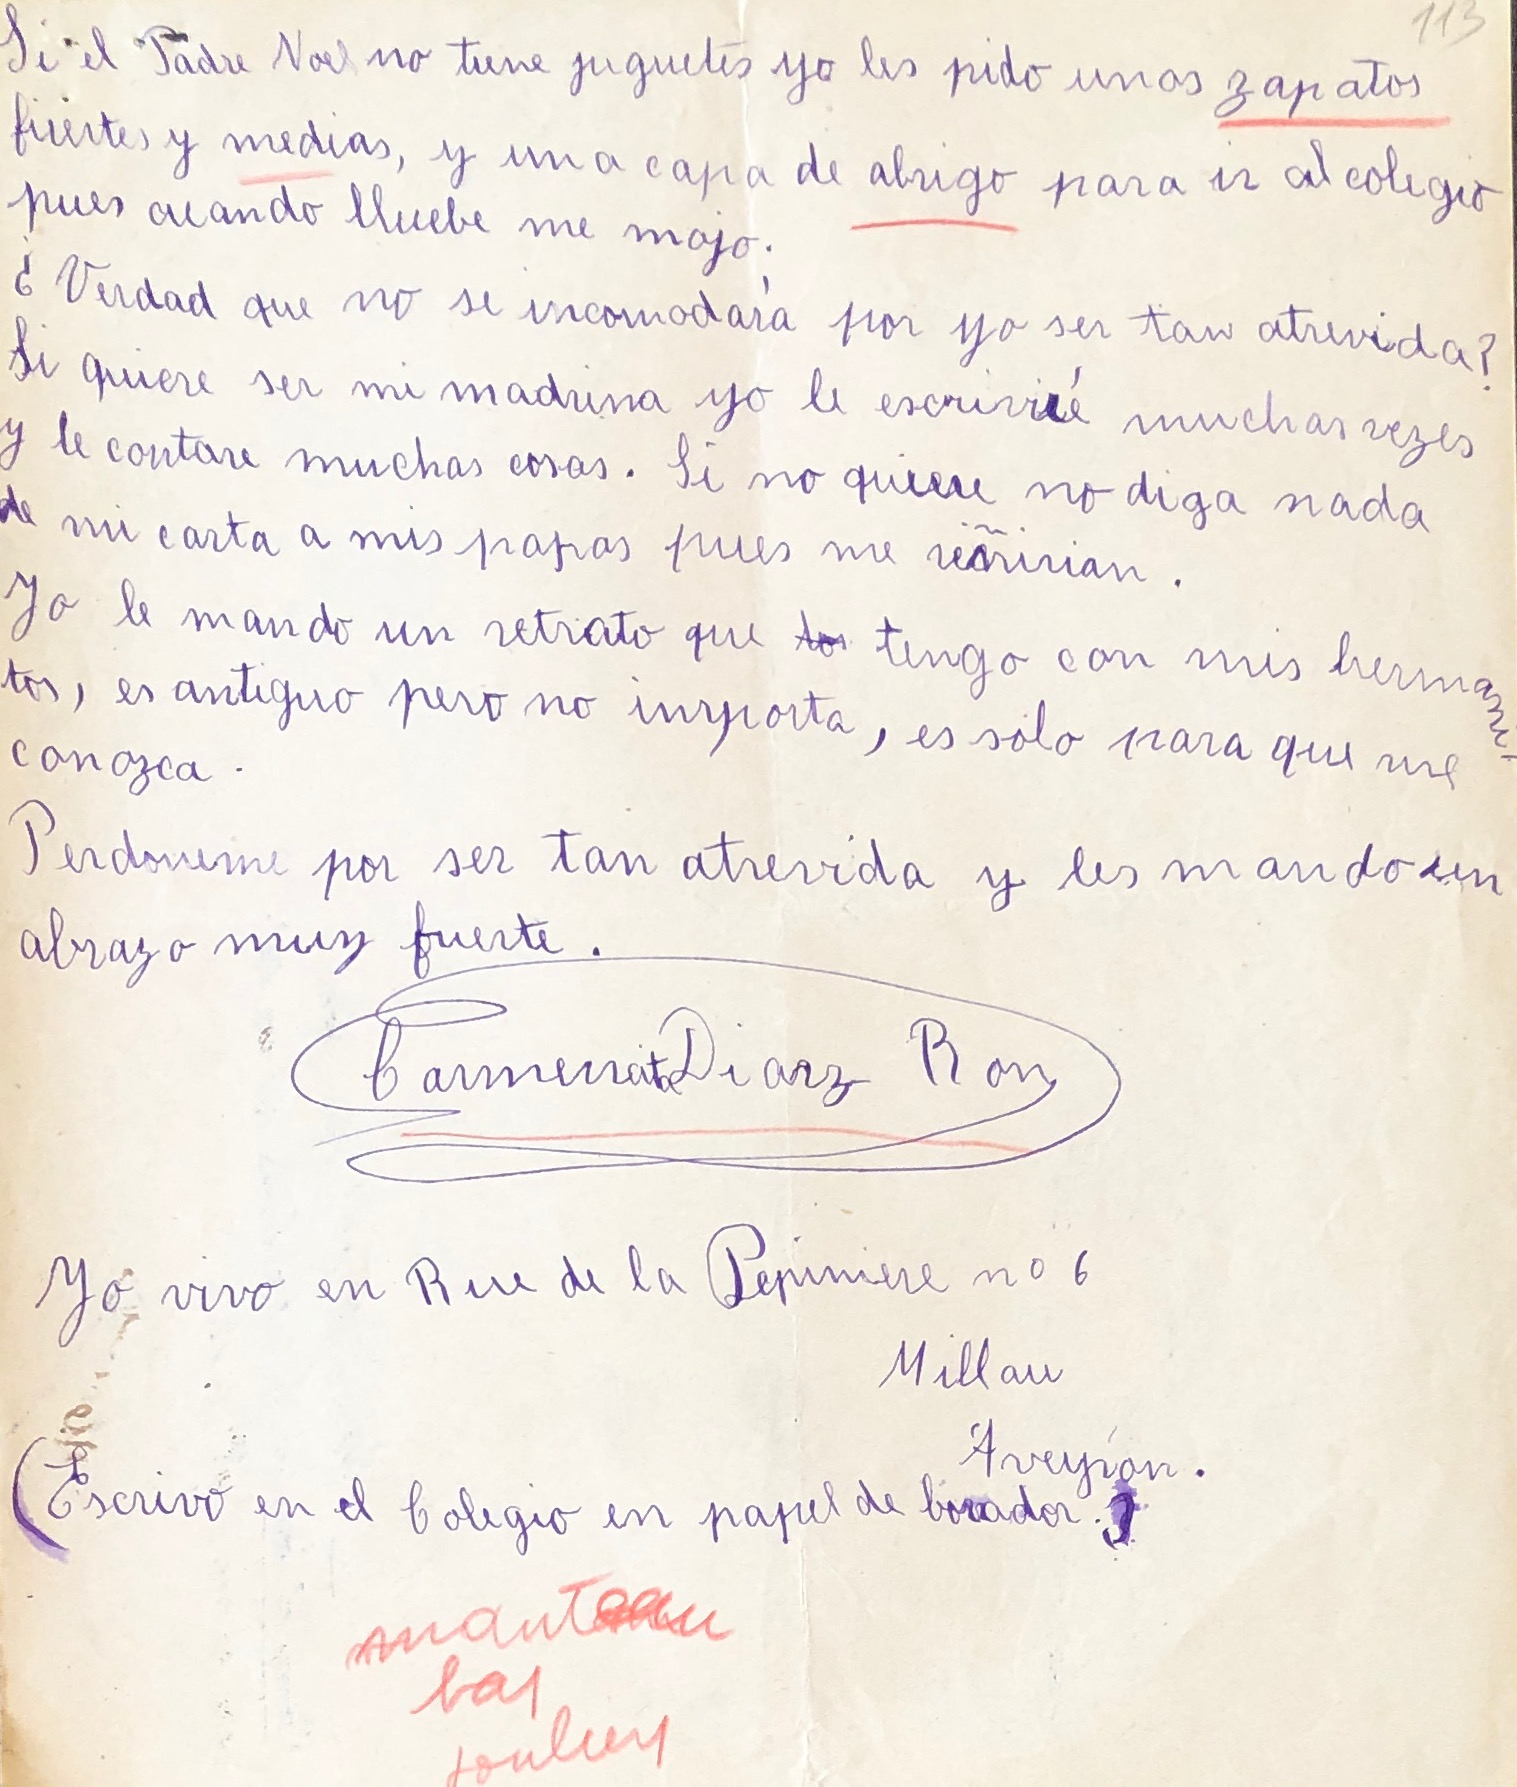 113
Si el Padre Noel no tiene juguetes yo les pido unos zapatos
fuertes y medias, y una capa de abrigo para ir al colegio
pues cuando lluebe me mojo.
¿Verdad que no se incomodará por yo ser tan atrevida?
Si quiere ser mi madrina yo le escriviré muchas vezes
y le contare muchas cosas. Si no quiere no diga nada
de mi carta a mis papas pues me reñirian.
Yo le mando un retrato que tengo con mis hermani-
tos, es antiguo pero no inrporta, es solo para que me
conozca.
Perdoneme por ser tan atrevida y les mando un
abrazo muy fuerte.
Carmencita Diaz Ron
Yo vivo en Rue de la Pepiniere no 6
Millau
Aveyron.
(Escrivo en el Colegio en papel de borrador.)
manteau
bas
soulier